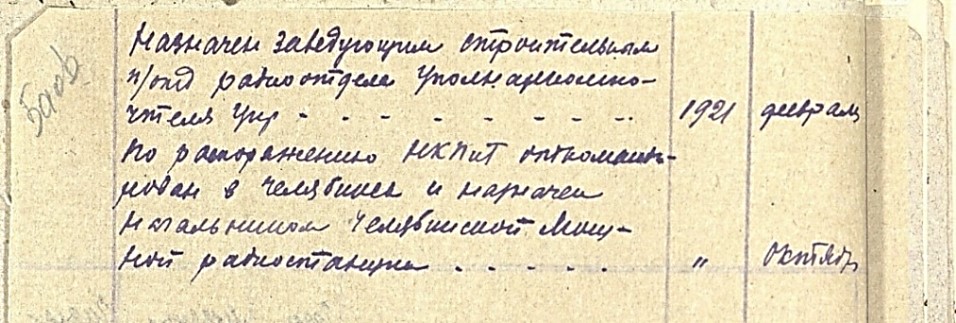 Назначен заведующим строительным
п/отд радиоотдела Уполнаркомпо-
чтеля Укр - - - - - - - - - 1921 февраль
По распоряжению НКПиТ откоманди-
рован в Челябинск и назначен
Начальником Челябинской Мощ-
ной радиостанции . . . . . " октябрь